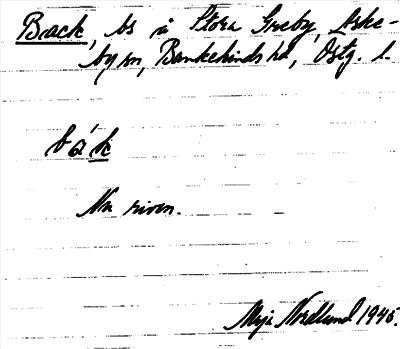 Brack, bs å Stora Greby, Aske-
by sn, Bankekinds hd, Östg. l.
bák
Nu riven.
Maja Nordlund 1945.